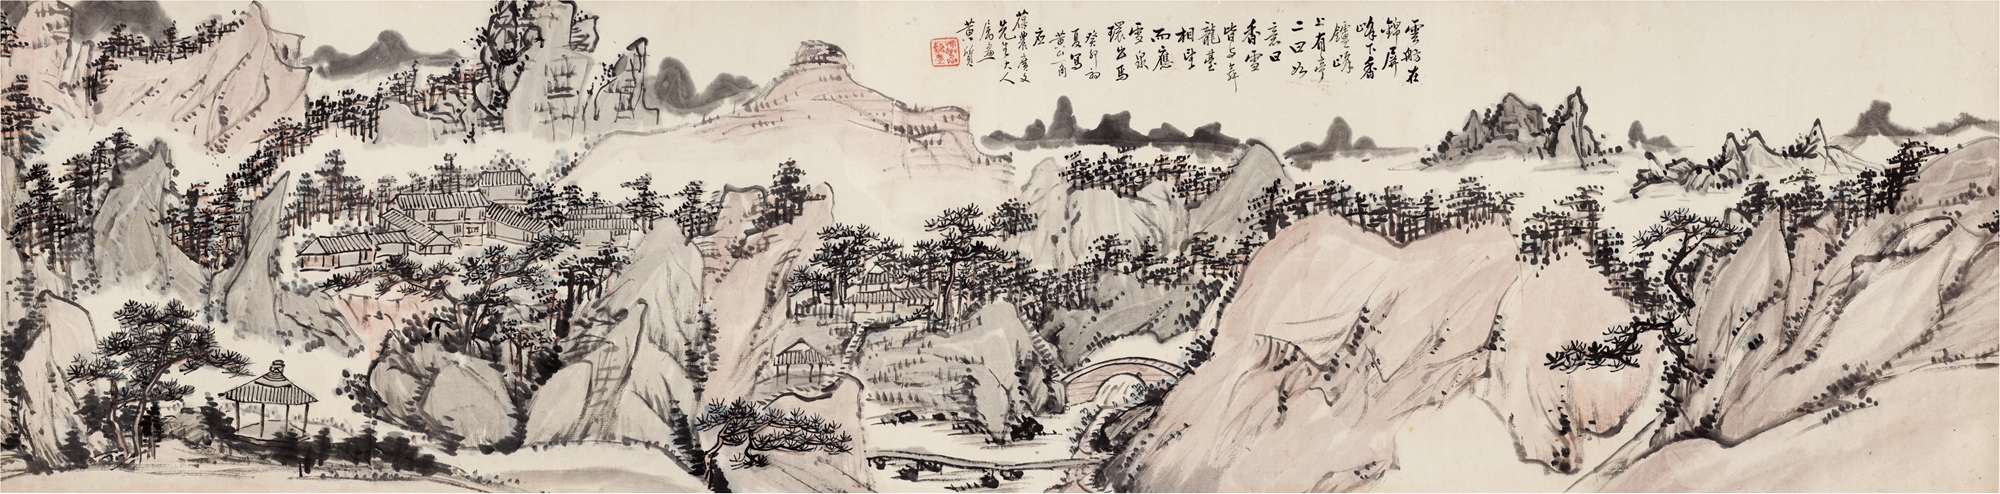 雲舫在
錦屏
峰下香
鑪峰
上有亭
二曰
意曰
香雪
皆与
龍蓬
相望
而應
雪泉
環出焉
癸卯初
夏寫
黃山一角
應
葆農廣文
先生大人
屬畫
黃質